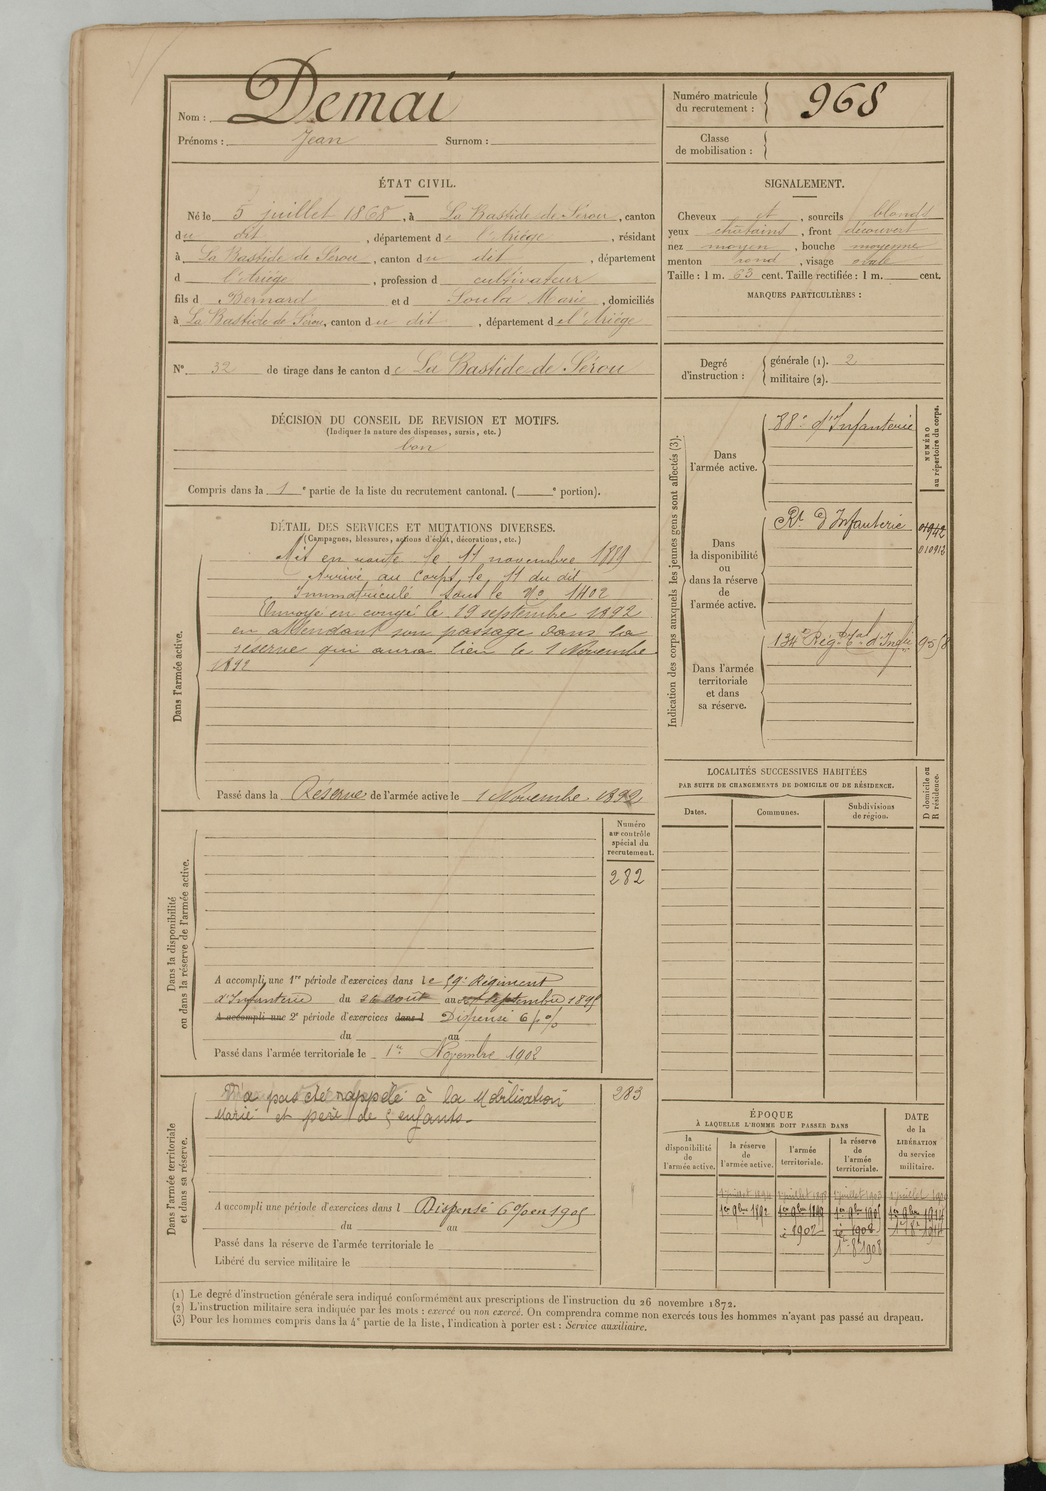 Nom : Demai
Prénoms : Jean Surnom :
Numéro matricule
du recrutement : 968
Classe
de mobilisation :
ÉTAT CIVIL.
Né le 5 juillet 1868, à La Bastide de Sérou, canton
du dit, département de l'Ariége, résidant
à La Bastide de Sérou, canton du dit, département
d l'Ariége, profession d cultivateur
fils d Bernard et d Soula Marie, domiciliés
à La Bastide de Sérou, canton du dit, département de l'Ariége
N° 32 de tirage dans le canton de La Bastide de Sérou
SIGNALEMENT.
Cheveux et, sourcils blonds
yeux chatains, front découvert
nez moyen, bouche moyenne
menton rond, visage ovale
Taille : 1 m. 63 cent. Taille rectifiée : 1 m. cent.
MARQUES PARTICULIÈRES :
Degré
d'instruction :
générale (1). 2
militaire (2).
DÉCISION DU CONSEIL DE REVISION ET MOTIFS.
(Indiquer la nature des dispenses, sursis, etc.)
bon
Compris dans la 1e partie de la liste du recrutement cantonal. ( e portion).
DÉTAIL DES SERVICES ET MUTATIONS DIVERSES.
(Campagnes, blessures, actions d'éclat, décorations, etc.)
Dans l'armée active.
Mis en route le 11 novembre 1889
Arrivé au corps le 11 du dit
Immatriculé sous le No 1402
Envoyé en congé le 19 septembre 1892
en attendant son passage dans la
réserve qui aura lieu le 1 Novembre
1892
Passé dans la Réserve de l'armée active le 1 Novembre 1892
Indication des corps auxquels les jeunes gens sont affectés (3).
NUMÉRO
au répertoire du corps.
Dans
l'armée active.
88e d'Infanterie
Dans
la disponibilité
ou
dans la réserve
de
l'armée active.
Rt d'Infanterie
01942
010912
Dans l'armée
territoriale
et dans
sa réserve.
134e Rég. tal d'Infie 95/8
LOCALITÉS SUCCESSIVES HABITÉES
PAR SUITE DE CHANGEMENTS DE DOMICILE OU DE RÉSIDENCE.
D domicile ou
R résidence.
Dates. Communes. Subdivisions
de région.
Dans la disponibilité
ou dans la réserve de l'armée active.
Numéro
au contrôle
spécial du
recrutement.
282
A accompli une 1re période d'exercices dans le 59e Régiment
d'Infanterie du 26 août au septembre 1895
A accompli une 2e période d'exercices dans l Dispensé 6 p%
du au
Passé dans l'armée territoriale le 1er Novembre 1902
Dans l'armée territoriale
et dans sa réserve.
283
N'a pas été rappelé à la Mobilisation
Marié et père de 5 enfants.
A accompli une période d'exercices dans l Dispensé 6 % en 1905
du au
Passé dans la réserve de l'armée territoriale le
Libéré du service militaire le
ÉPOQUE
À LAQUELLE L'HOMME DOIT PASSER DANS
DATE
de la
LIBÉRATION
du service
militaire.
la
disponibilité
de
l'armée active.
la réserve
de
l'armée active.
l'armée
territoriale.
la réserve
de
l'armée
territoriale.
1er 9bre 1892
1902 1908
1908
(1) Le degré d'instruction générale sera indiqué conformément aux prescriptions de l'instruction du 26 novembre 1872.
(2) L'instruction militaire sera indiquée par les mots : exercé ou non exercé. On comprendra comme non exercés tous les hommes n'ayant pas passé au drapeau.
(3) Pour les hommes compris dans la 4e partie de la liste, l'indication à porter est : Service auxiliaire.